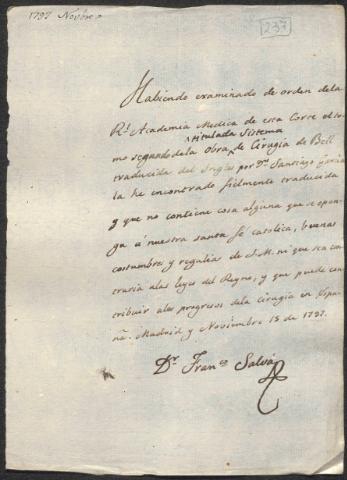 1797 Novbre
237
Habiendo examinado de orden dela
Rl. Academia Medica de esta Corte el to-
titulada Sistema
mo segundo dela Obra de Cirugia de Bell
traducida del Ingles por Dn. Santiago Garcia
la he encontrado fielmente traducida
y que no contiene cosa alguna que se opon-
ga á nuestra santa fé catolica, buenas
costumbres y regalias de S.M. ni que sea con-
traria alas leyes del Reyno; y que puede con-
tribuir alos progresos dela cirugia en Espa-
ña. Madrid y Noviembre 15 de 1797.
Dr. Franco Salvá